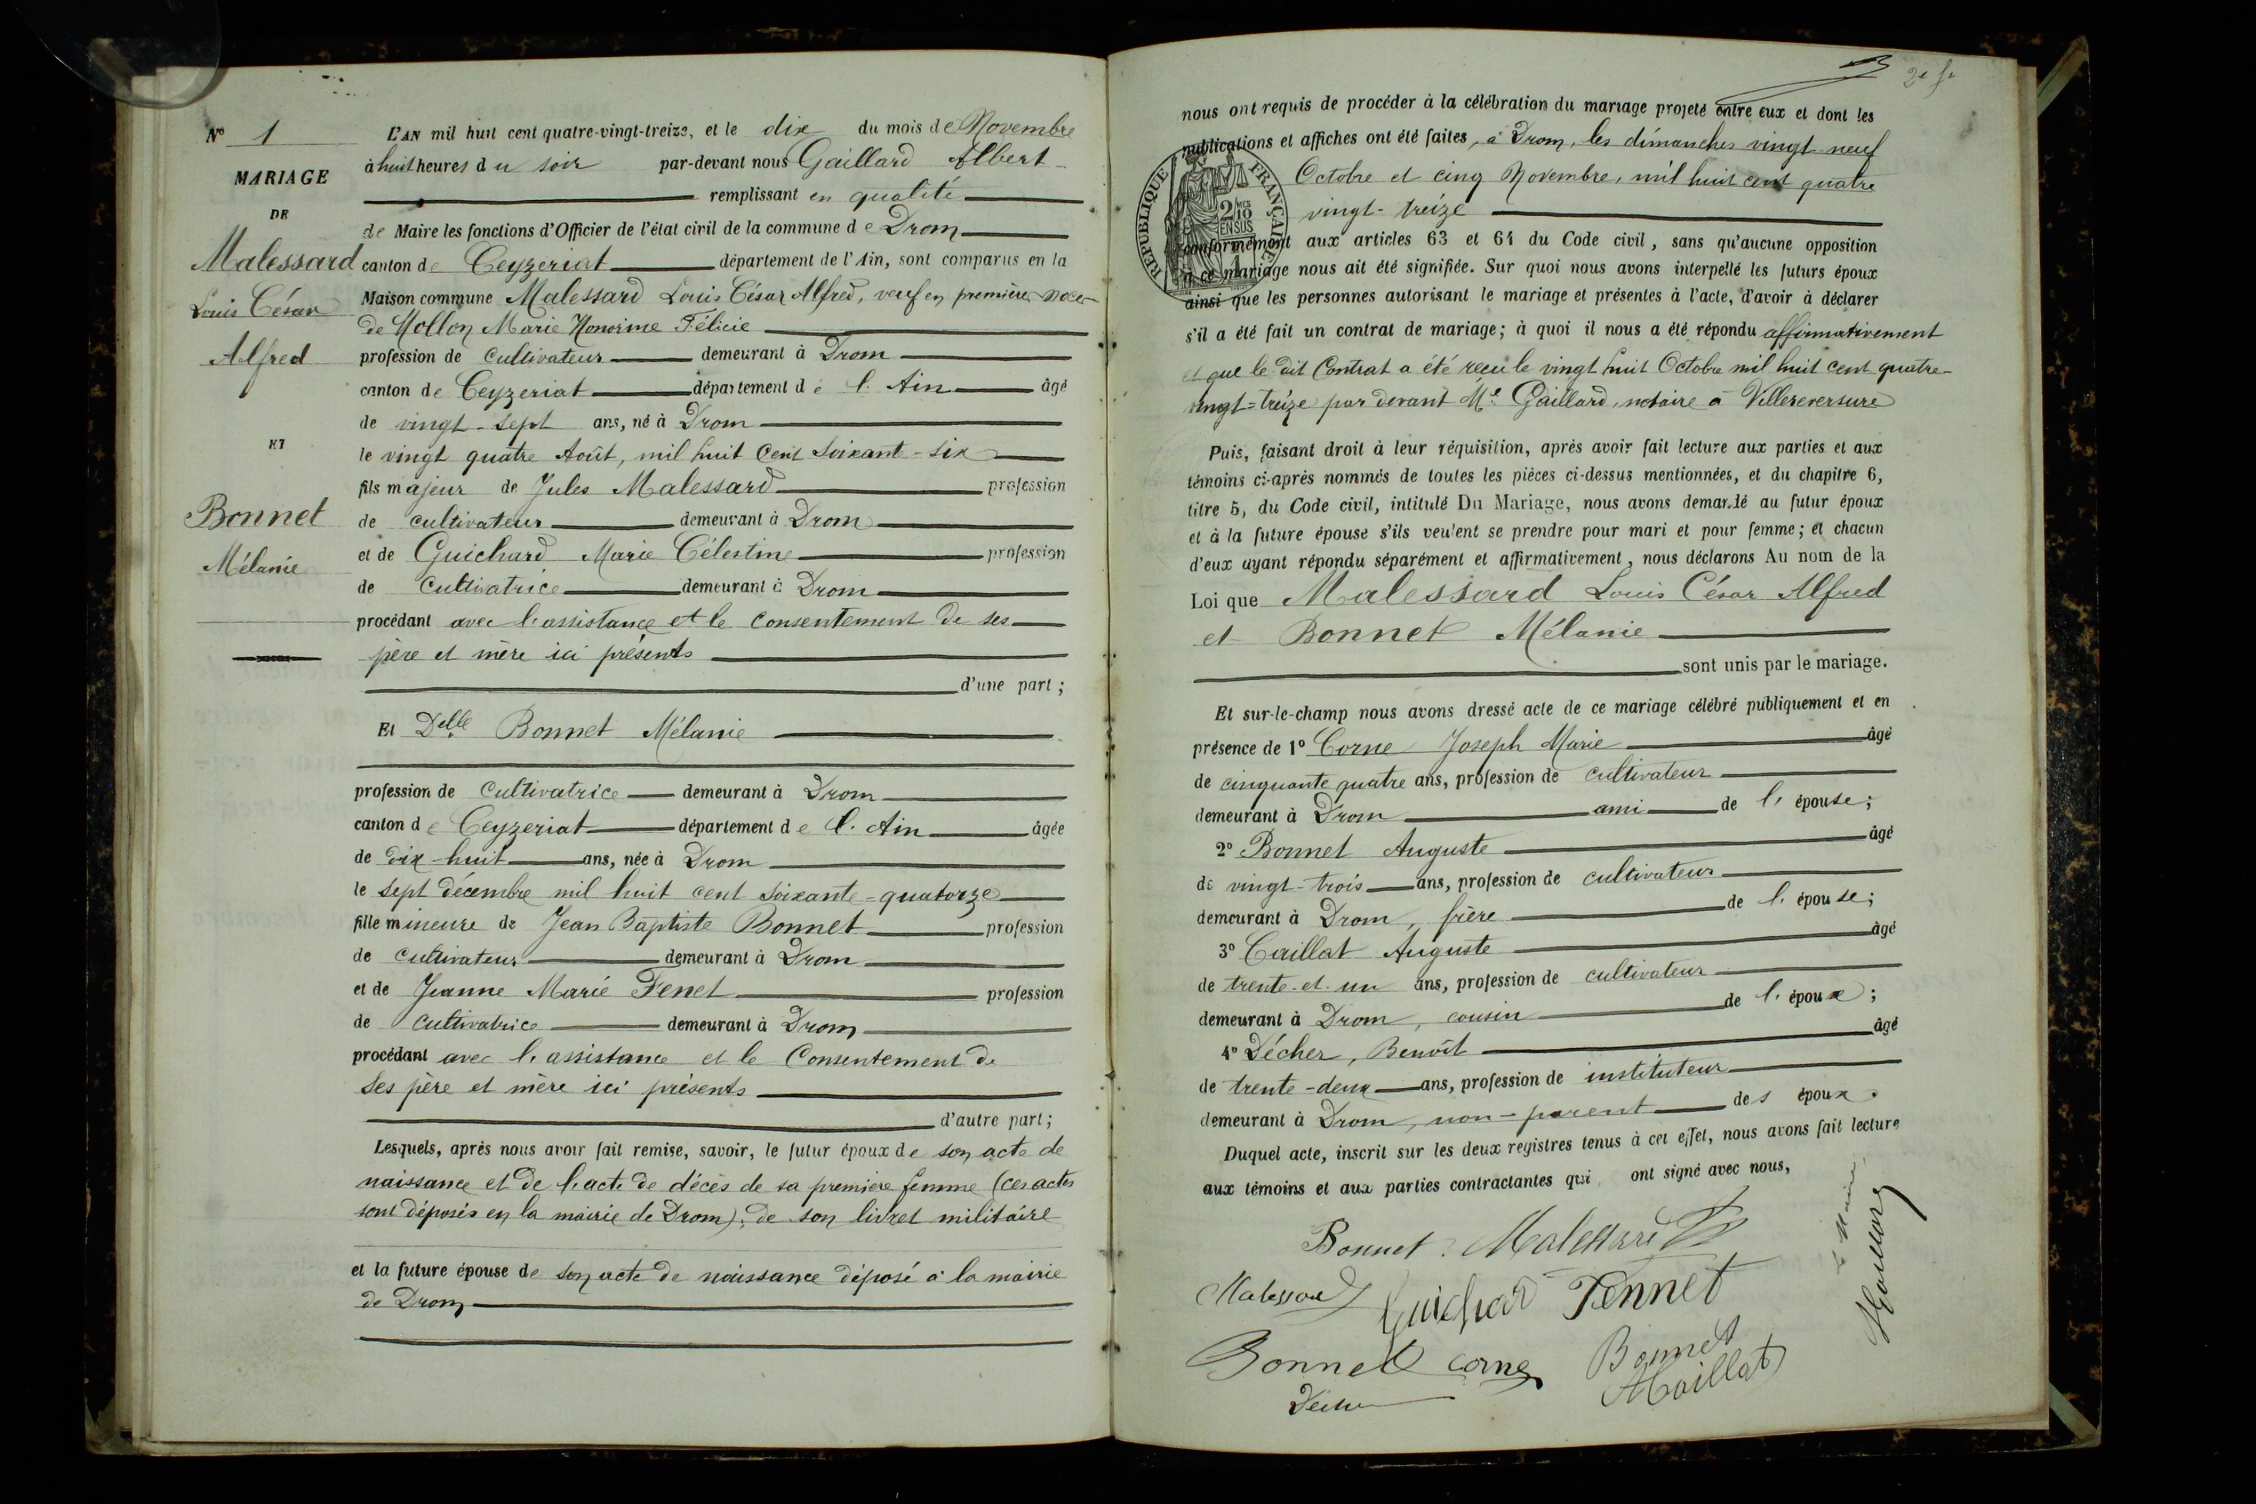 N° 1
MARIAGE
DE
Malessard
Louis César
Alfred
ET
Bonnet
Mélanie
L'AN mil huit cent quatre-vingt-treize, et le dix du mois de Novembre
à huit heures du soir par-devant nous Gaillard Albert
remplissant en qualité
de Maire les fonctions d'Officier de l'état civil de la commune de Drom
canton de Ceyzeriat département de l'Ain, sont comparus en la
Maison commune Malessard Louis César Alfred, veuf en premières noces
de Mollon Marie Honorine Félicie
profession de cultivateur demeurant à Drom
canton de Ceyzeriat département de l'Ain âgé
de vingt-sept ans, né à Drom
le vingt quatre Août, mil huit Cent soixant-six
fils majeur de Jules Malessard profession
de cultivateur demeurant à Drom
et de Guichard Marie Célestine profession
de cultivatrice demeurant à Drom
procédant avec l'assistance et le consentement de ses
père et mère ici présents
d'une part ;
Et Delle Bonnet Mélanie
profession de cultivatrice demeurant à Drom
canton de Ceyzeriat département de l'Ain âgée
de dix-huit ans, née à Drom
le sept décembre mil huit cent soixante-quatorze
fille mineure de Jean Baptiste Bonnet profession
de cultivateur demeurant à Drom
et de Jeanne Marie Fenet profession
de cultivatrice demeurant à Drom
procédant avec l'assistance et le Consentement de
ses père et mère ici présents
d'autre part ;
Lesquels, après nous avoir fait remise, savoir, le futur époux de son acte de
naissance et de l'acte de décès de sa première femme (ces actes
sont déposés en la mairie de Drom), de son livret militaire
et la future épouse de son acte de naissance déposé à la mairie
de Drom
2e
nous ont requis de procéder à la célébration du mariage projeté entre eux et dont les
publications et affiches ont été faites, à Drom, les dimanches vingt neuf
Octobre et cinq Novembre, mil huit cent quatre
vingt-treize
RÉPUBLIQUE FRANÇAISE
2/10 EN SUS
conformément aux articles 63 et 64 du Code civil, sans qu'aucune opposition
à ce mariage nous ait été signifiée. Sur quoi nous avons interpellé les futurs époux
ainsi que les personnes autorisant le mariage et présentes à l'acte, d'avoir à déclarer
s'il a été fait un contrat de mariage ; à quoi il nous a été répondu affirmativement
et que le dit Contrat a été reçu le vingt huit Octobre mil huit cent quatre-
vingt-treize par devant Me Gaillard, notaire à Villereversure
Puis, faisant droit à leur réquisition, après avoir fait lecture aux parties et aux
témoins ci-après nommés de toutes les pièces ci-dessus mentionnées, et du chapitre 6,
titre 5, du Code civil, intitulé Du Mariage, nous avons demandé au futur époux
et à la future épouse s'ils veulent se prendre pour mari et pour femme ; et chacun
d'eux ayant répondu séparément et affirmativement, nous déclarons Au nom de la
Loi que Malessard Louis César Alfred
et Bonnet Mélanie
sont unis par le mariage.
Et sur-le-champ nous avons dressé acte de ce mariage célébré publiquement et en
présence de 1° Corne Joseph Marie âgé
de cinquante quatre ans, profession de cultivateur
demeurant à Drom ami de l'épouse ;
2° Bonnet Auguste âgé
de vingt-trois ans, profession de cultivateur
demeurant à Drom, frère de l'épouse ;
3° Caillat Auguste âgé
de trente-et-un ans, profession de cultivateur
demeurant à Drom, cousin de l'époux ;
4° Décher, Benoît âgé
de trente-deux ans, profession de instituteur
demeurant à Drom, non-parent des époux.
Duquel acte, inscrit sur les deux registres tenus à cet effet, nous avons fait lecture
aux témoins et aux parties contractantes qui ont signé avec nous,
Bonnet. Malessard
Malessard Guichard Fennet
Bonnet Corne Bonnet
ACaillat
Décher
Le Maire